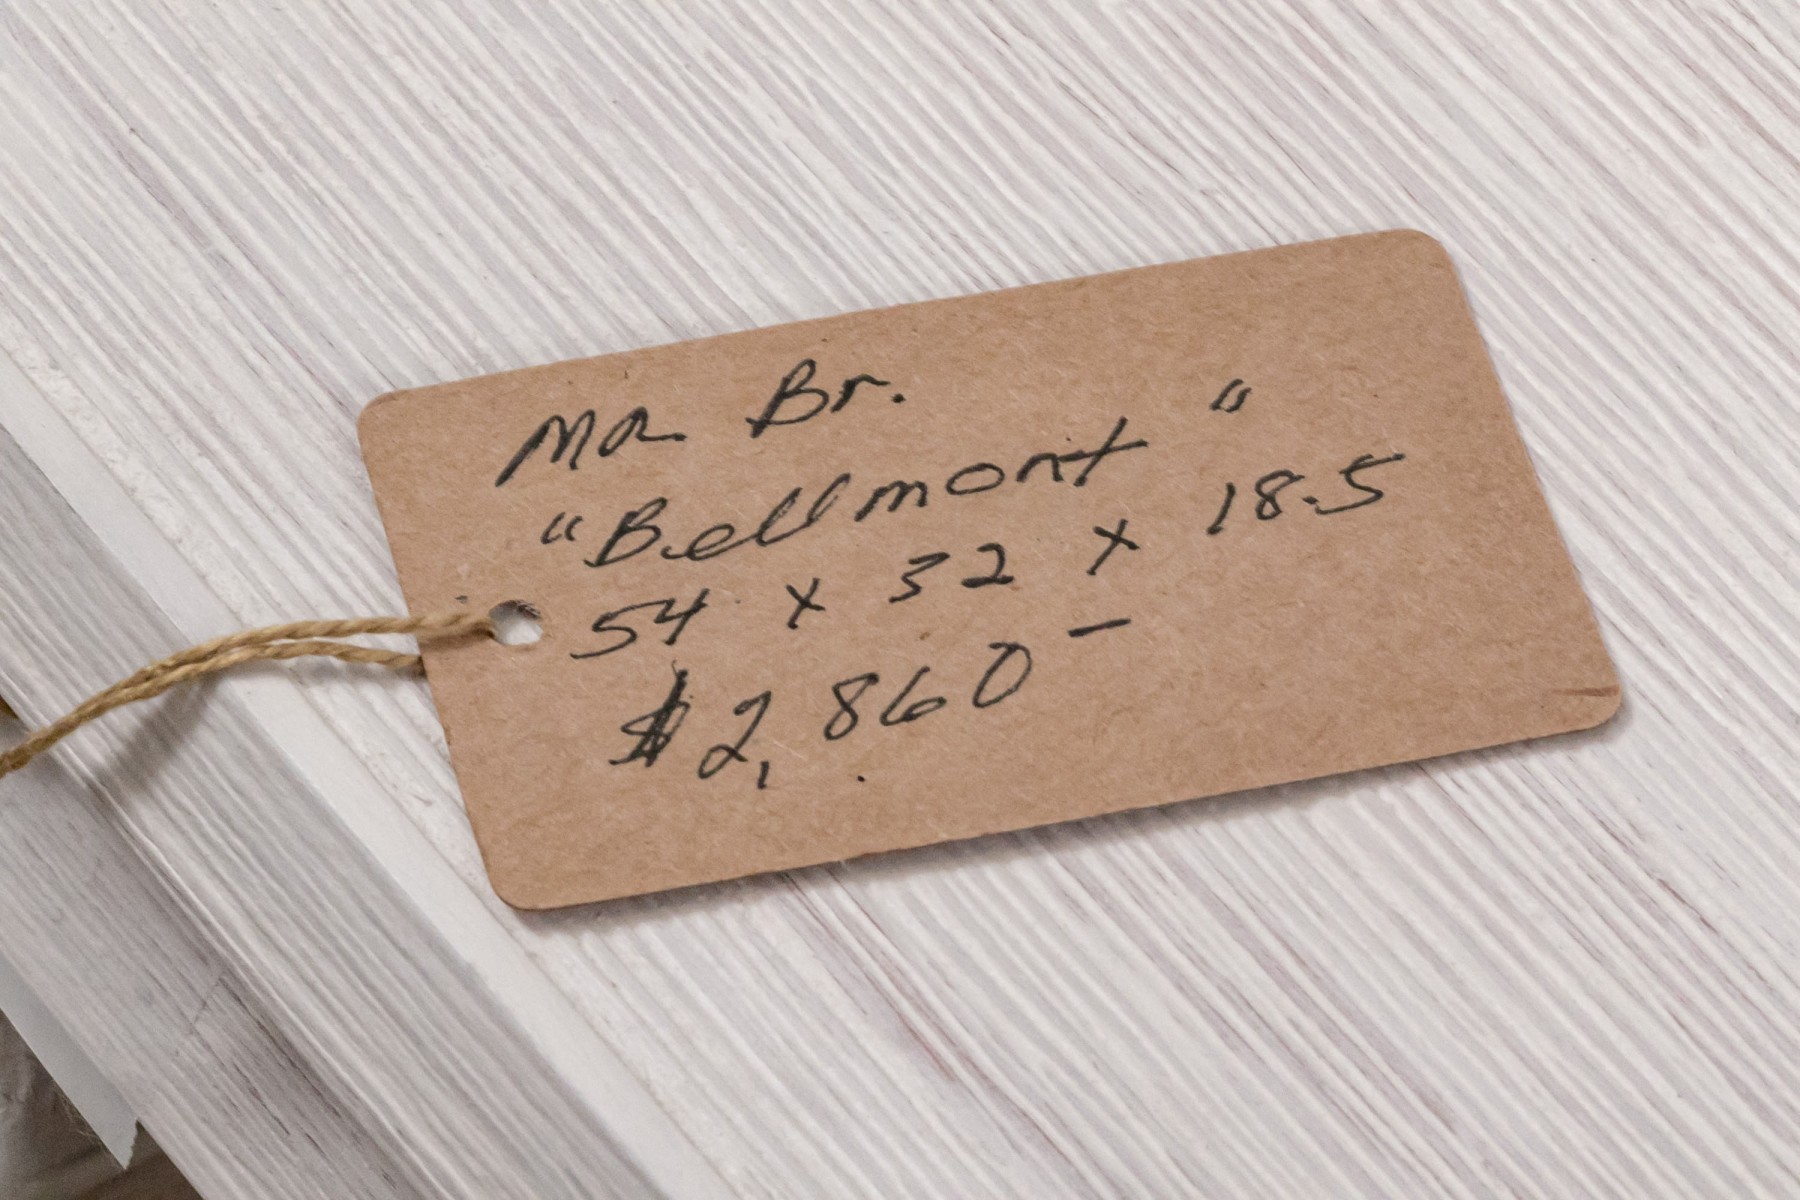 Ma Br.
"Bellmont"
54 x 32 x 18.5
$2,860-